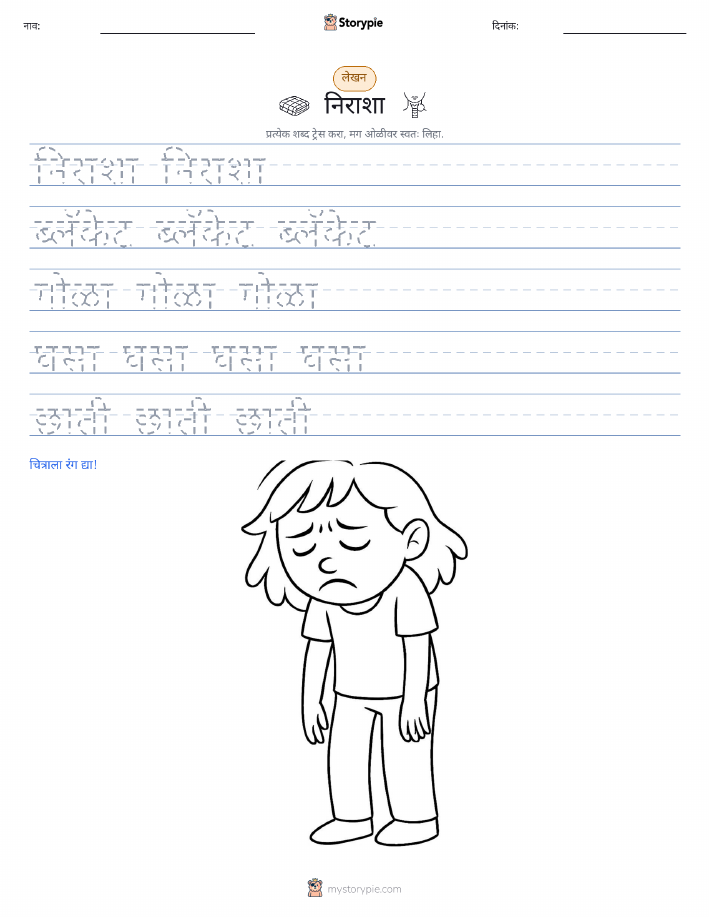 नाव: Storypie दिनांक:
लेखन
निराशा
प्रत्येक शब्द ट्रेस करा, मग ओळीवर स्वतः लिहा.
निराशा निराशा
ब्लँकेट ब्लँकेट ब्लँकेट
गोळा गोळा गोळा
घसा घसा घसा घसा
छाती छाती छाती
चित्राला रंग द्या!
mystorypie.com